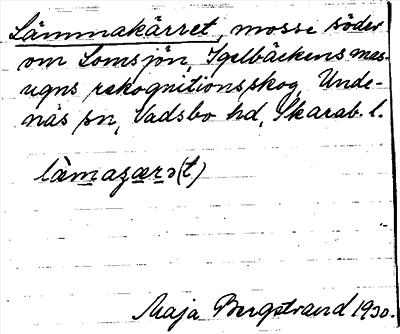 Lämmakärret, mosse söder
om Lomsjön, Igelbäckens mas-
ugns rekognitionsskog, Unde-
näs sn, Vadsbo hd, Skarab. l.
Maja Bergstrand 1930.